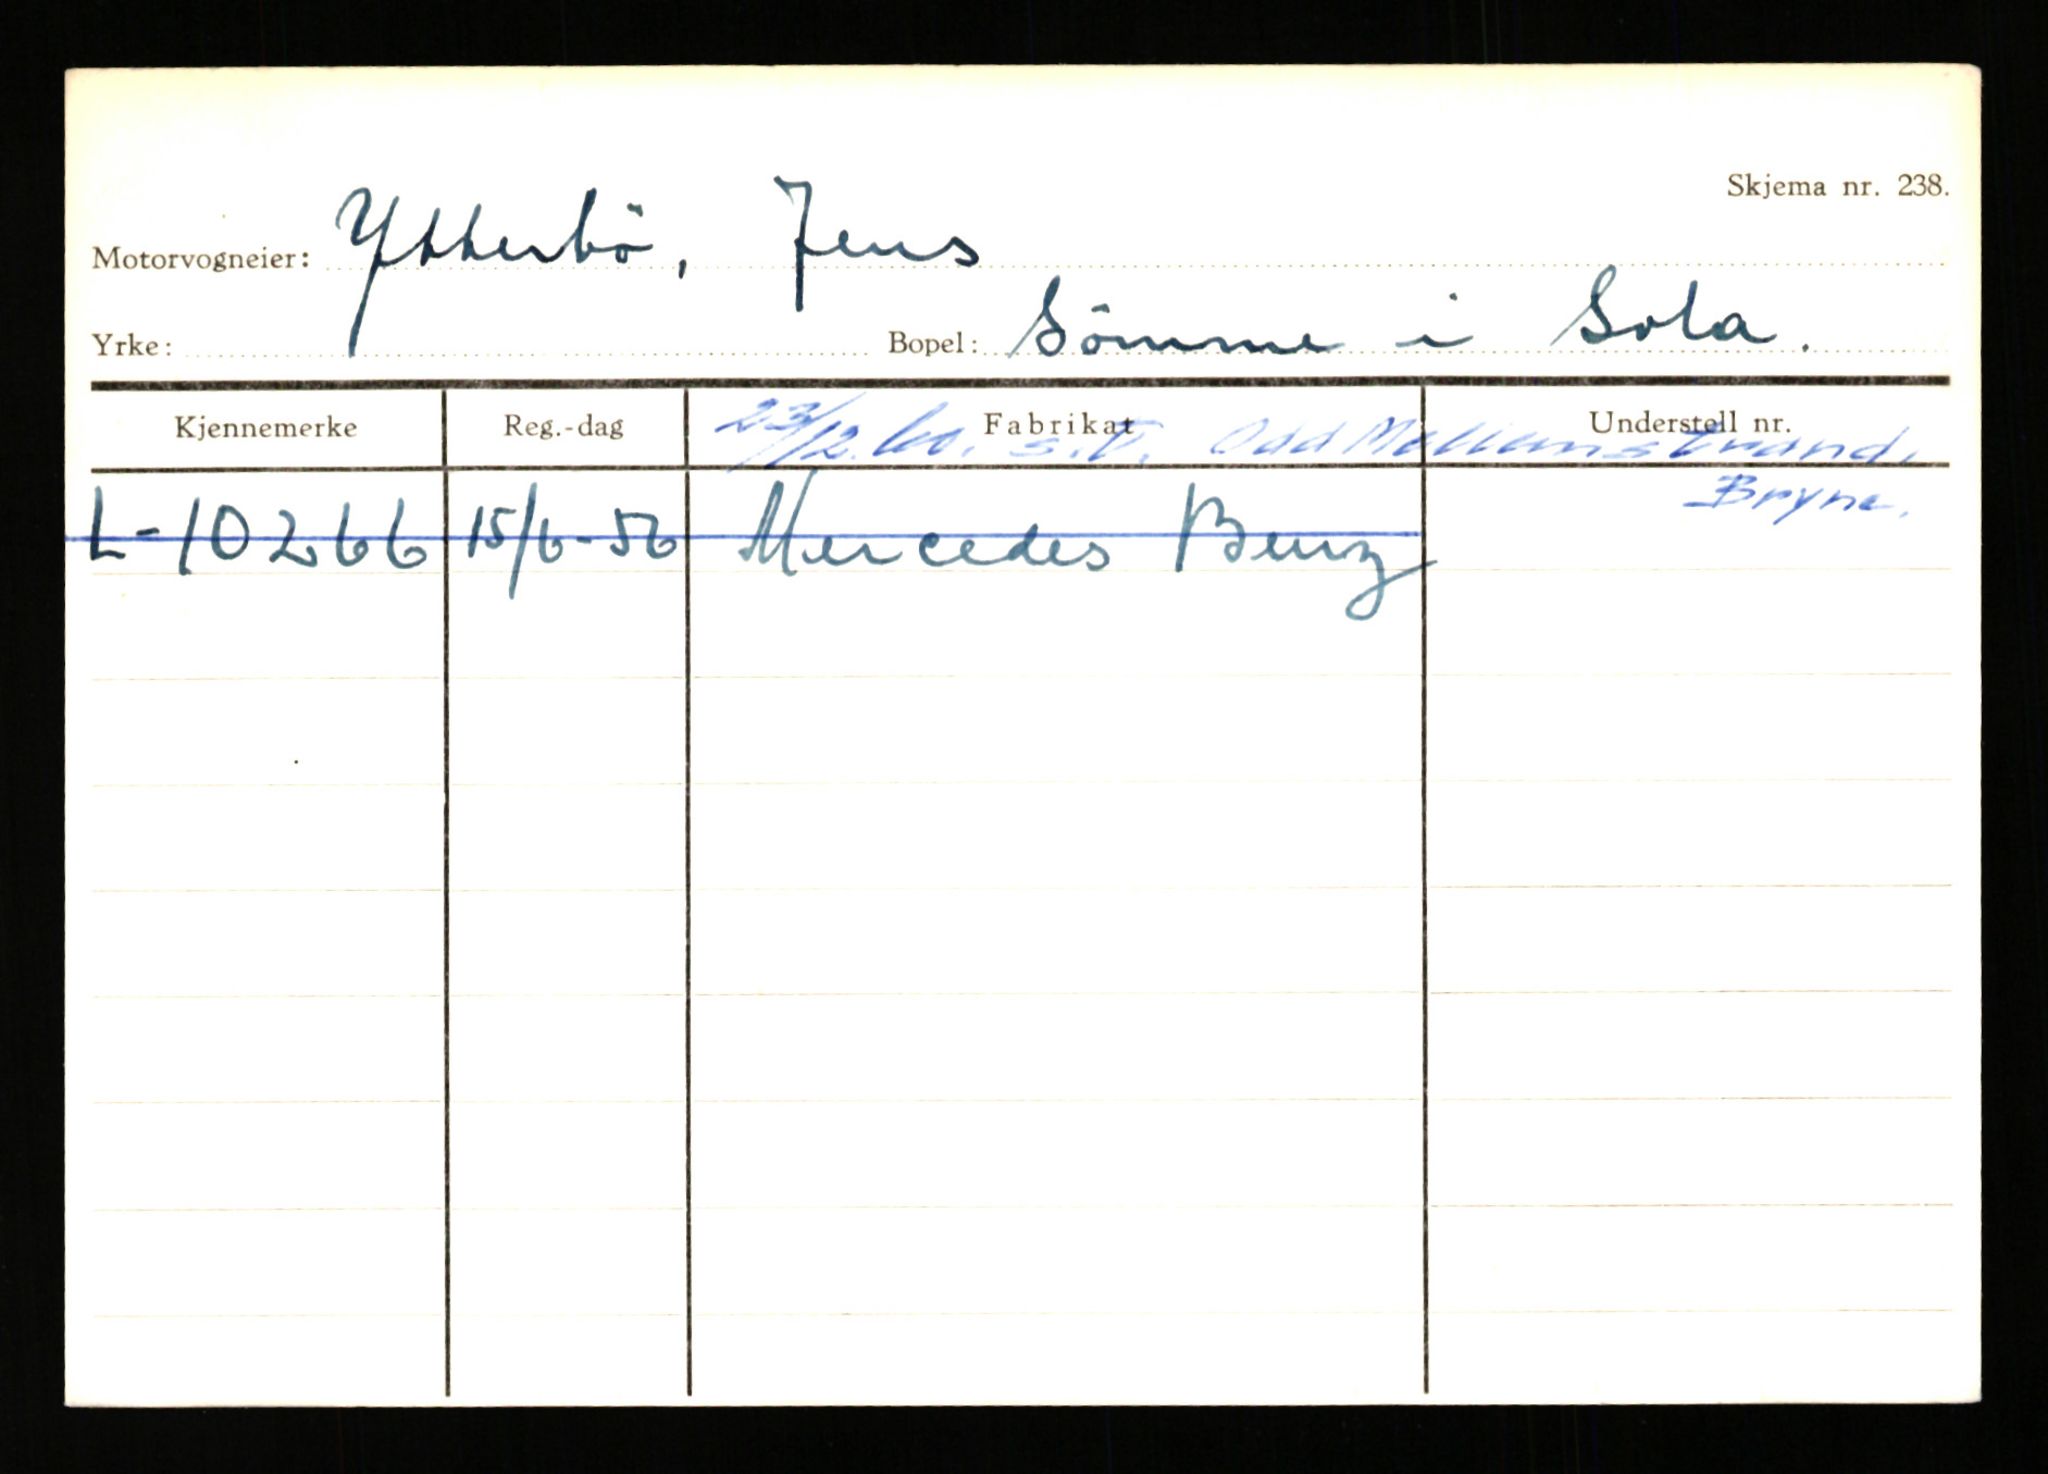 Skjema nr. 238.
Motorvogneier: Ytterbö, Jens
Yrke: Bopel: Sömme i Sola.
Kjennemerke Reg.-dag Fabrikat Understell nr.
23/12.60. s.t. Odd Mellemstrand,
Bryne.
L-10266 15/6-56 Mercedes Benz